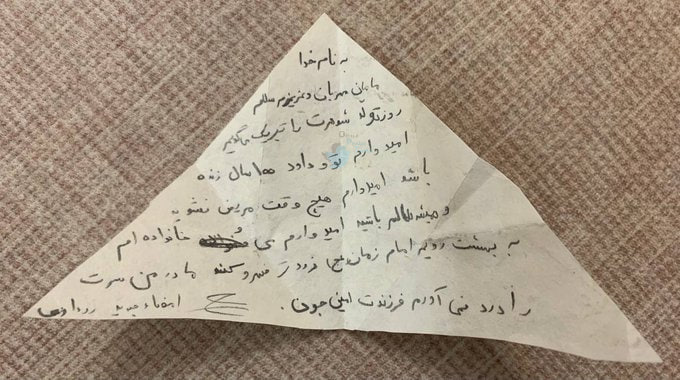 به نام خدا
مامان مهربان و عزیزم سلام
روز تولد شوهرت را تبریک می‌گویم
امیدوارم تو و داود ۱۰۰ سال زنده
باشید امیدوارم هیچ وقت مریض نشوید
و همیشه سالم باشید امیدوارم خانواده ام
به بهشت رود و امام زمان زودتر کند مادر من سرت
را درد نمی آورم فرزندت
امضاء جدید